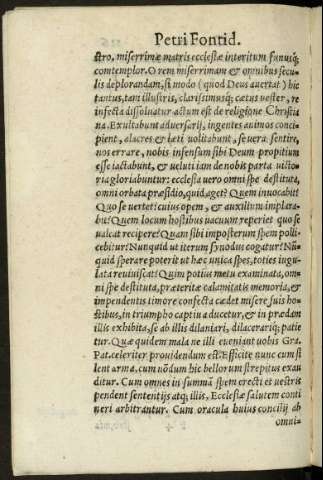 Petri Fontid.
ctro, miserrimæ matris ecclesiæ interitum funusq́;
comtemplor. O rem miserrimam & omnibus secu-
lis deplorandam, si modo (quod Deus auertat) hic
tantus, tam illustris, clarissimusq́; cœtus vester, re
infecta dissoluatur actum est de religione Christi
na. Exultabunt aduersarij, ingentes animos conci-
pient, alacres & læti volitabunt, se vera sentire,
nos errare, nobis infensum sibi Deum propitium
esse iactabunt, & veluti iam de nobis parta victo-
ria gloriabuntur: ecclesia vero omni spe destituta,
omni orbata præsidio, quid aget? Quem inuocabit?
Quo se vertet? cuius opem, & auxilium implora-
bit? Quem locum hostibus vacuum reperiet quo se
valeat recipere? Quam sibi imposterum spem polli-
cebitur? Nunquid ut iterum synodus cogatur? Nũ-
quid sperare poterit ut hæc unica spes, toties iugu-
lata reuiuiscat? Quim potius metu examinata, om-
ni spe destituta, præteritæ calamitatis memoria, &
impendentis timore confecta cædet misere suis ho-
stibus, in triumpho captiua ducetur, & in prædam
illis exhibita, se ab illis dilaniari, dilacerariq́; patie
tur. Quæ quidem mala ne illi eueniant vobis Gra.
Pat. celeriter prouidendum est. Efficite nunc cum si
lent arma, cum nõdum hic bellorum strepitus exau
ditur. Cum omnes in summa spem erecti et vestris
pendent sententijs atq́; illis, Ecclesiæ salutem conti
neri arbitrantur. Cum oracula huius concilij ab
omni-